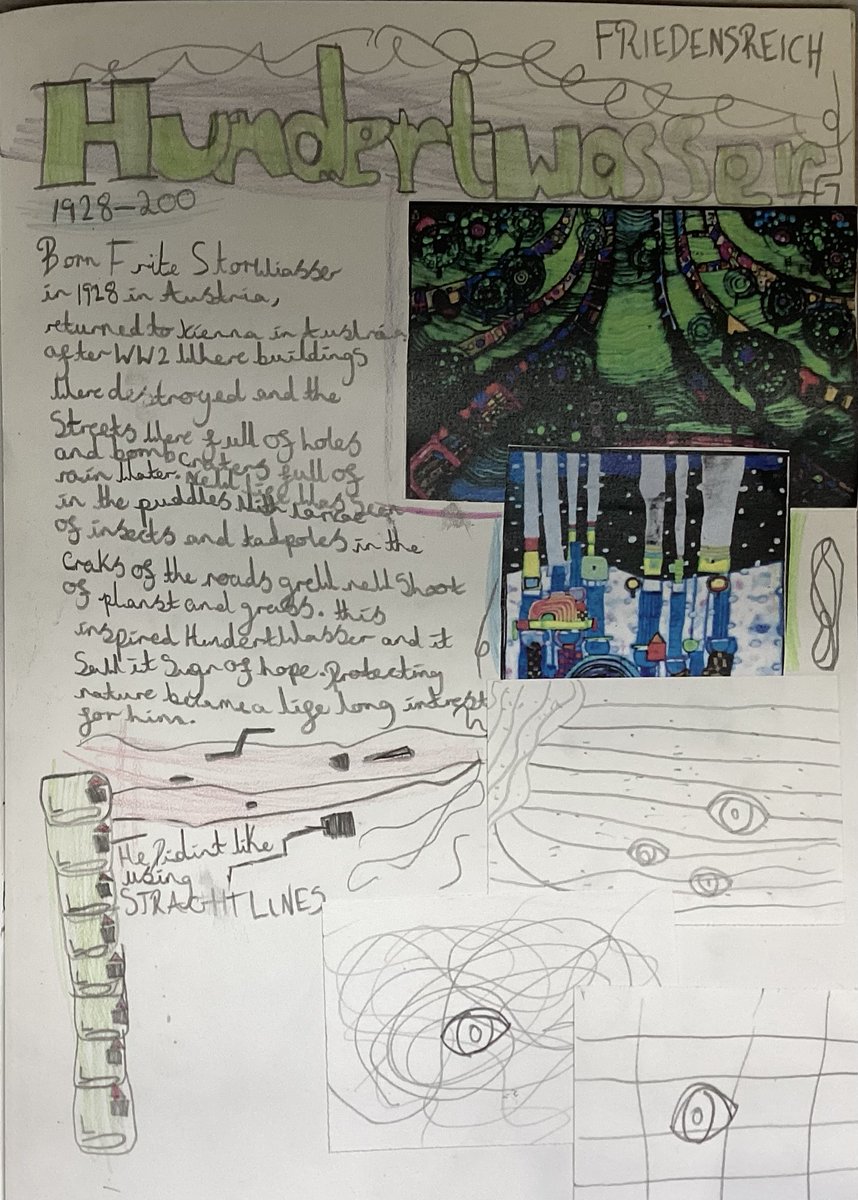 FRIEDENSREICH
Hundertwasser
1928-200
Born Frite Stowasser
in 1928 in Austria,
returned to Vienna in Austria
after WW2 Where buildings
Were destroyed and the
Streets Were full of holes
and bomb Craters full of
rain Water. New life Was Seen
in the puddles With larvae
of insects and tadpoles in the
craks of the roads grew new Shoot
of planst and grass. this
inspired Hundertwasser and it
Saw it Sign of hope. Protecting
nature became a life long intrest
for him.
He Didint like
using
STRAGHT LINES